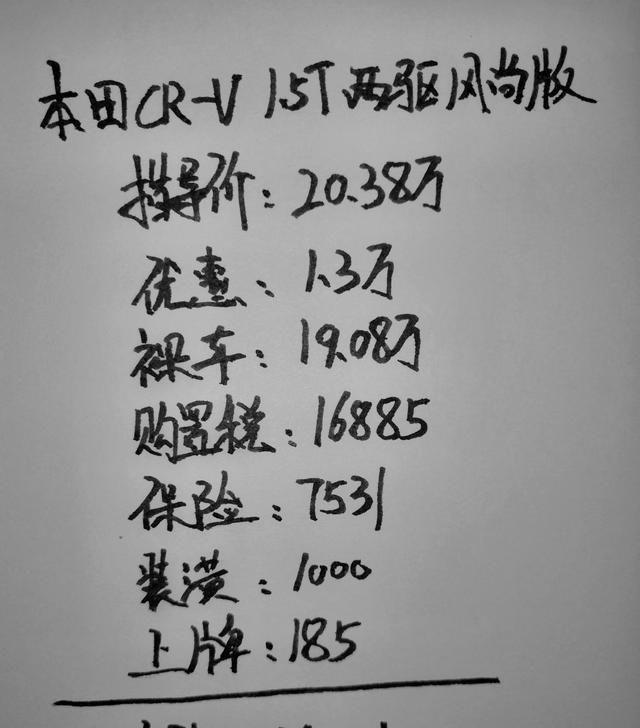 本田CR-V 1.5T两驱风尚版
指导价：20.38万
优惠：1.3万
裸车：19.08万
购置税：16885
保险：7531
装潢：1000
上牌：185